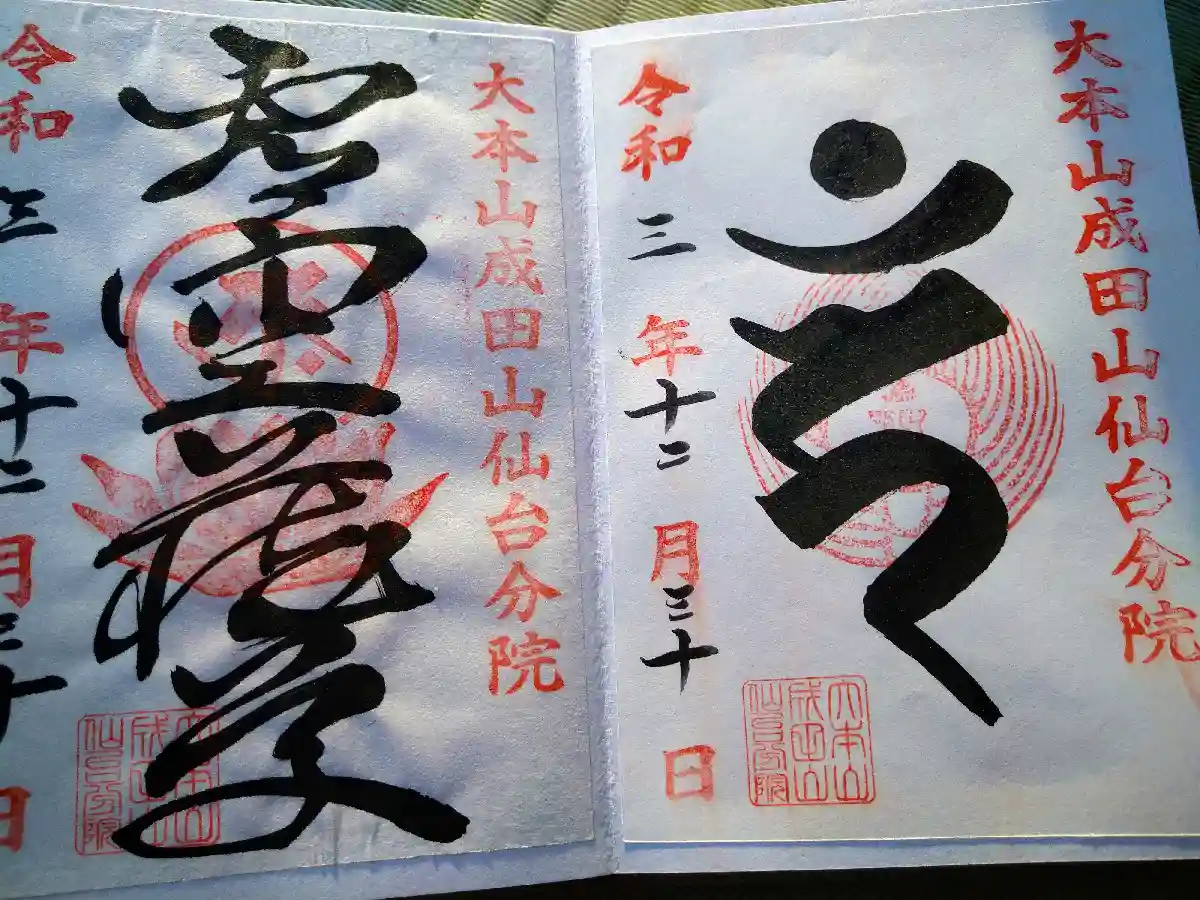 大本山成田山仙台分院
令和三年十二月三十日
大本山
成田山
仙台分院
大本山成田山仙台分院
虚空蔵尊
令和三年十二月三十日
大本山
成田山
仙台分院